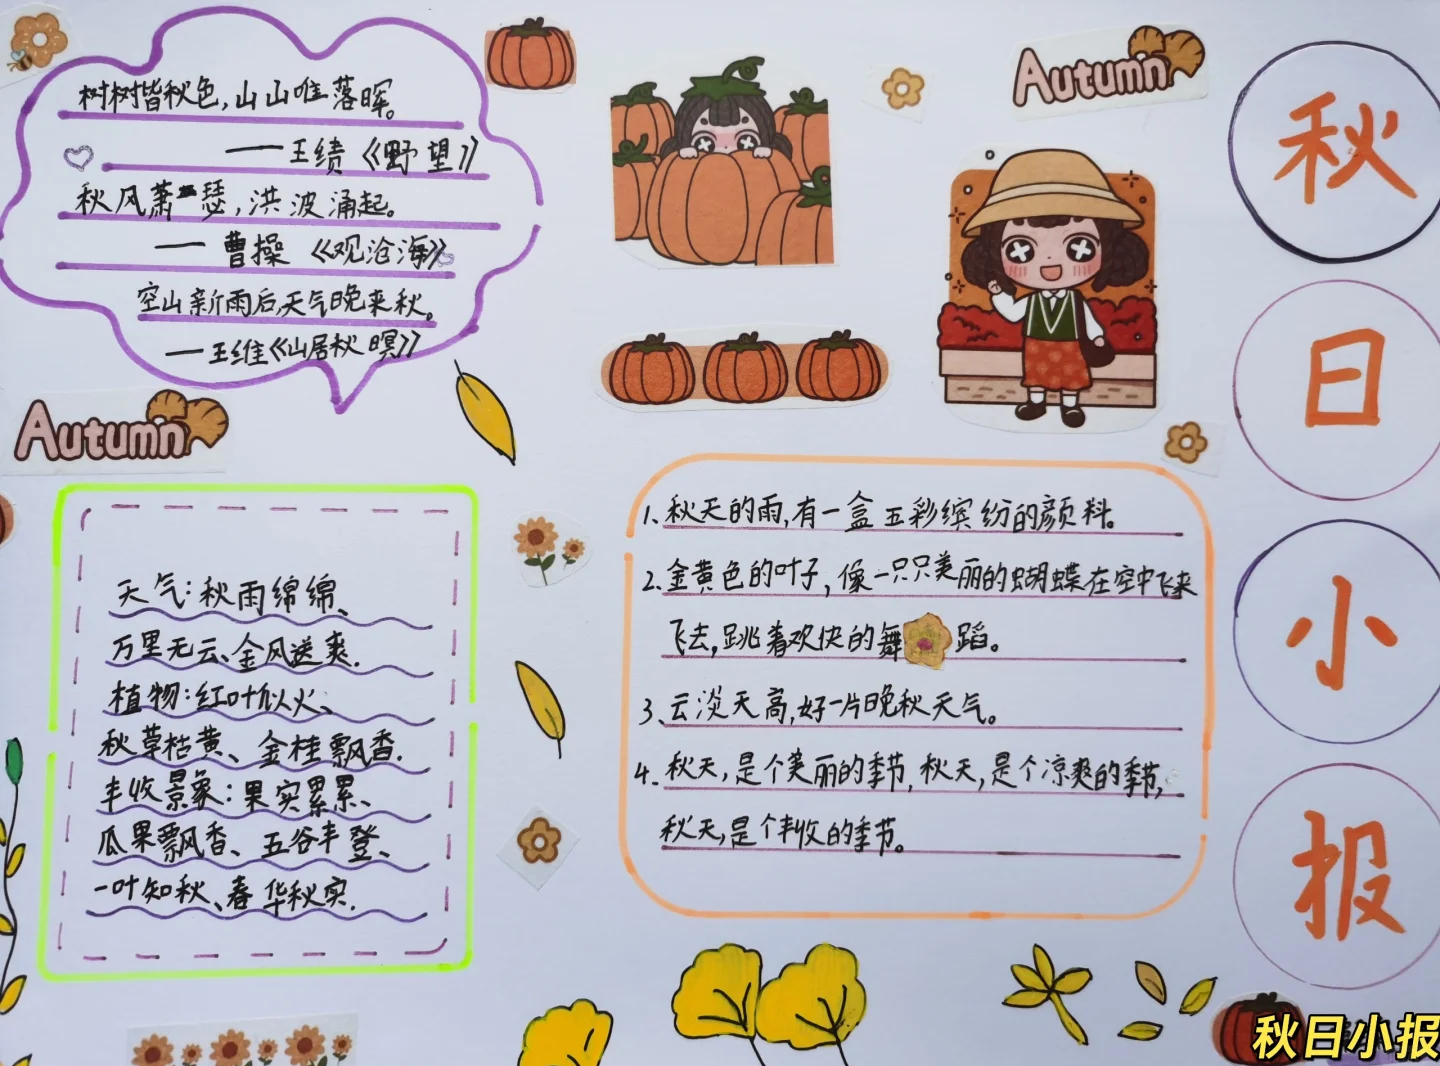 树树皆秋色，山山唯落晖。
——王绩《野望》
秋风萧瑟，洪波涌起。
——曹操《观沧海》
空山新雨后，天气晚来秋。
——王维《山居秋暝》
Autumn
Autumn
秋
日
小
报
天气：秋雨绵绵、
万里无云、金风送爽.
植物：红叶似火、
秋草枯黄、金桂飘香.
丰收景象：果实累累、
瓜果飘香、五谷丰登、
一叶知秋、春华秋实.
1、秋天的雨，有一盒五彩缤纷的颜料。
2、金黄色的叶子，像一只只美丽的蝴蝶在空中飞来
飞去，跳着欢快的舞蹈。
3、云淡天高，好一片晚秋天气。
4、秋天，是个美丽的季节，秋天，是个凉爽的季节，
秋天，是个丰收的季节。
秋日小报